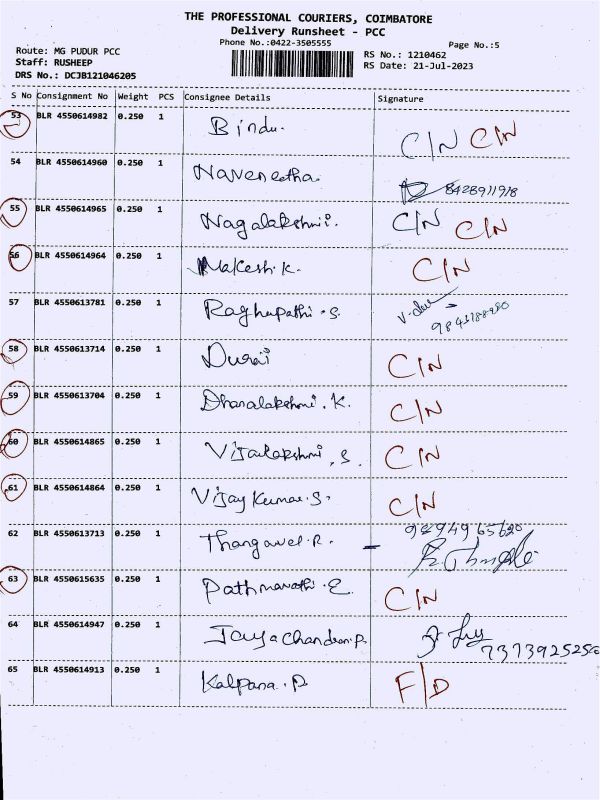 THE PROFESSIONAL COURIERS, COIMBATORE
Delivery Runsheet - PCC
Phone No.:0422-3505555
Page No.:5
Route: MG PUDUR PCC
RS No.: 1210462
Staff: RUSHEEP
RS Date: 21-Jul-2023
DRS No.: DCJB121046205
S No Consignment No Weight PCS Consignee Details Signature
53 BLR 4550614982 0.250 1 Bindu. C/N C/N
54 BLR 4550614960 0.250 1 Naveneetha. 8428911918
55 BLR 4550614965 0.250 1 Nagalakshmi. C/N C/N
56 BLR 4550614964 0.250 1 Makesh.K. C/N
57 BLR 4550613781 0.250 1 Raghupathi.S.
58 BLR 4550613714 0.250 1 Durai C/N
59 BLR 4550613704 0.250 1 Dhanalakshmi.K. C/N
60 BLR 4550614865 0.250 1 Vijailakshmi.S. C/N
61 BLR 4550614864 0.250 1 Vijay Kumar.S. C/N
62 BLR 4550613713 0.250 1 Thangavel.R. - 9894965620
63 BLR 4550615635 0.250 1 Pathmavathi.E. C/N
64 BLR 4550614947 0.250 1 Jayachandran.P.
65 BLR 4550614913 0.250 1 Kalpana.P F/D